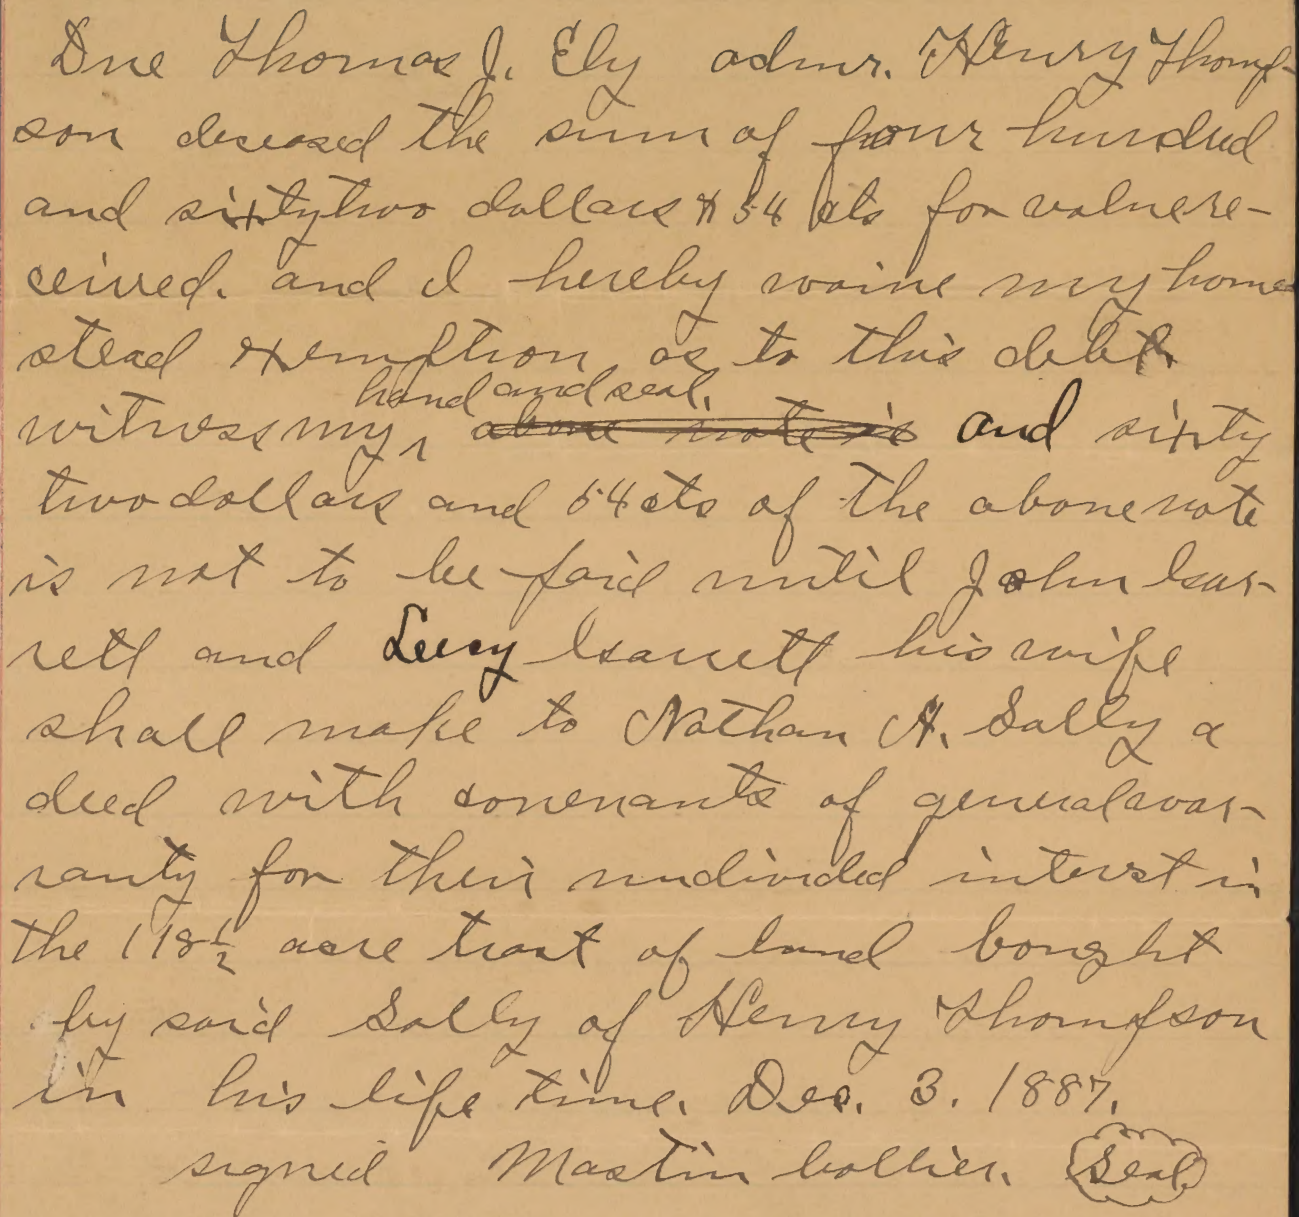 Due Thomas J. Ely admr. Henry Thomp-
son deceased the sum of four hundred
and sixtytwo dollars & 54 cts for value re-
ceived. and I hereby waive my home
stead exemption as to this debt.
hand and seal.
witness my ‸ above note is and sixty
two dollars and 54 cts of the above note
is not to be paid until John Gar-
rett and Lucy Garrett his wife
shall make to Nathan A. Sally a
deed with covenants of general war-
ranty for their undivided interst in
the 118 1/2 acre tract of land bought
by said Sally of Henry Thompson
in his life time. Dec. 3. 1887.
signed Mastin Collier. Seal.